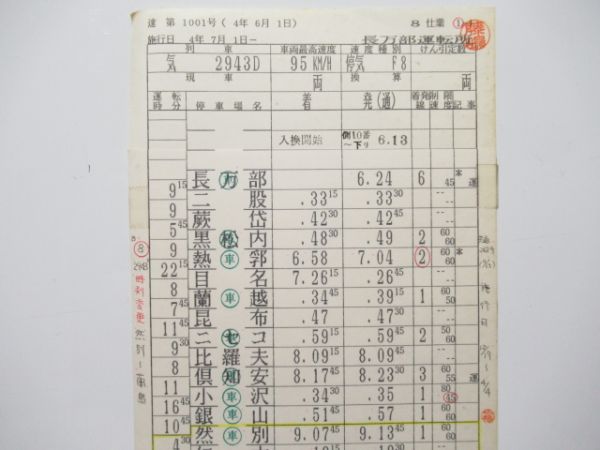 達 第 1001号 ( 4年 6月 1日) 8 仕業 ①
施行日 4年 7月 1日 — 長万部運転所
列車 車両最高速度 速度種別 けん引定数
気 2943D 95 KM/H 停気 F8
現車 両 換算 両
運転時分 停車場名 着 発(通) 着発線 制限速度 記事
入換開始 側10番~下り 6.13
長万部 6.24 6 45 運
9 15 二股 .33 15 .33 30
9 蕨岱 .42 30 .42 45
5 45 黒松内 .48 30 .49 2 60 60
9 熱車郛 6.58 7.04 2 60 60
22 15 目名 7.26 15 .26 45
8 蘭車越 .34 45 .39 15 1 60 50
7 45 昆布 .47 .47 30
11 45 ニセコ .59 15 .59 45 2 50 60
9 30 比羅夫 8.09 15 8.09 45
8 倶知安 8.17 45 8.23 30 3 60 55 運
11 小車沢 .34 30 .35 1 80 45
16 45 銀車山 .51 45 .57 1 60 60
10 45 然車別 9.07 45 9.13 45 1 60 60
4 30
8
時刻変更
然別~蘭島
施行日